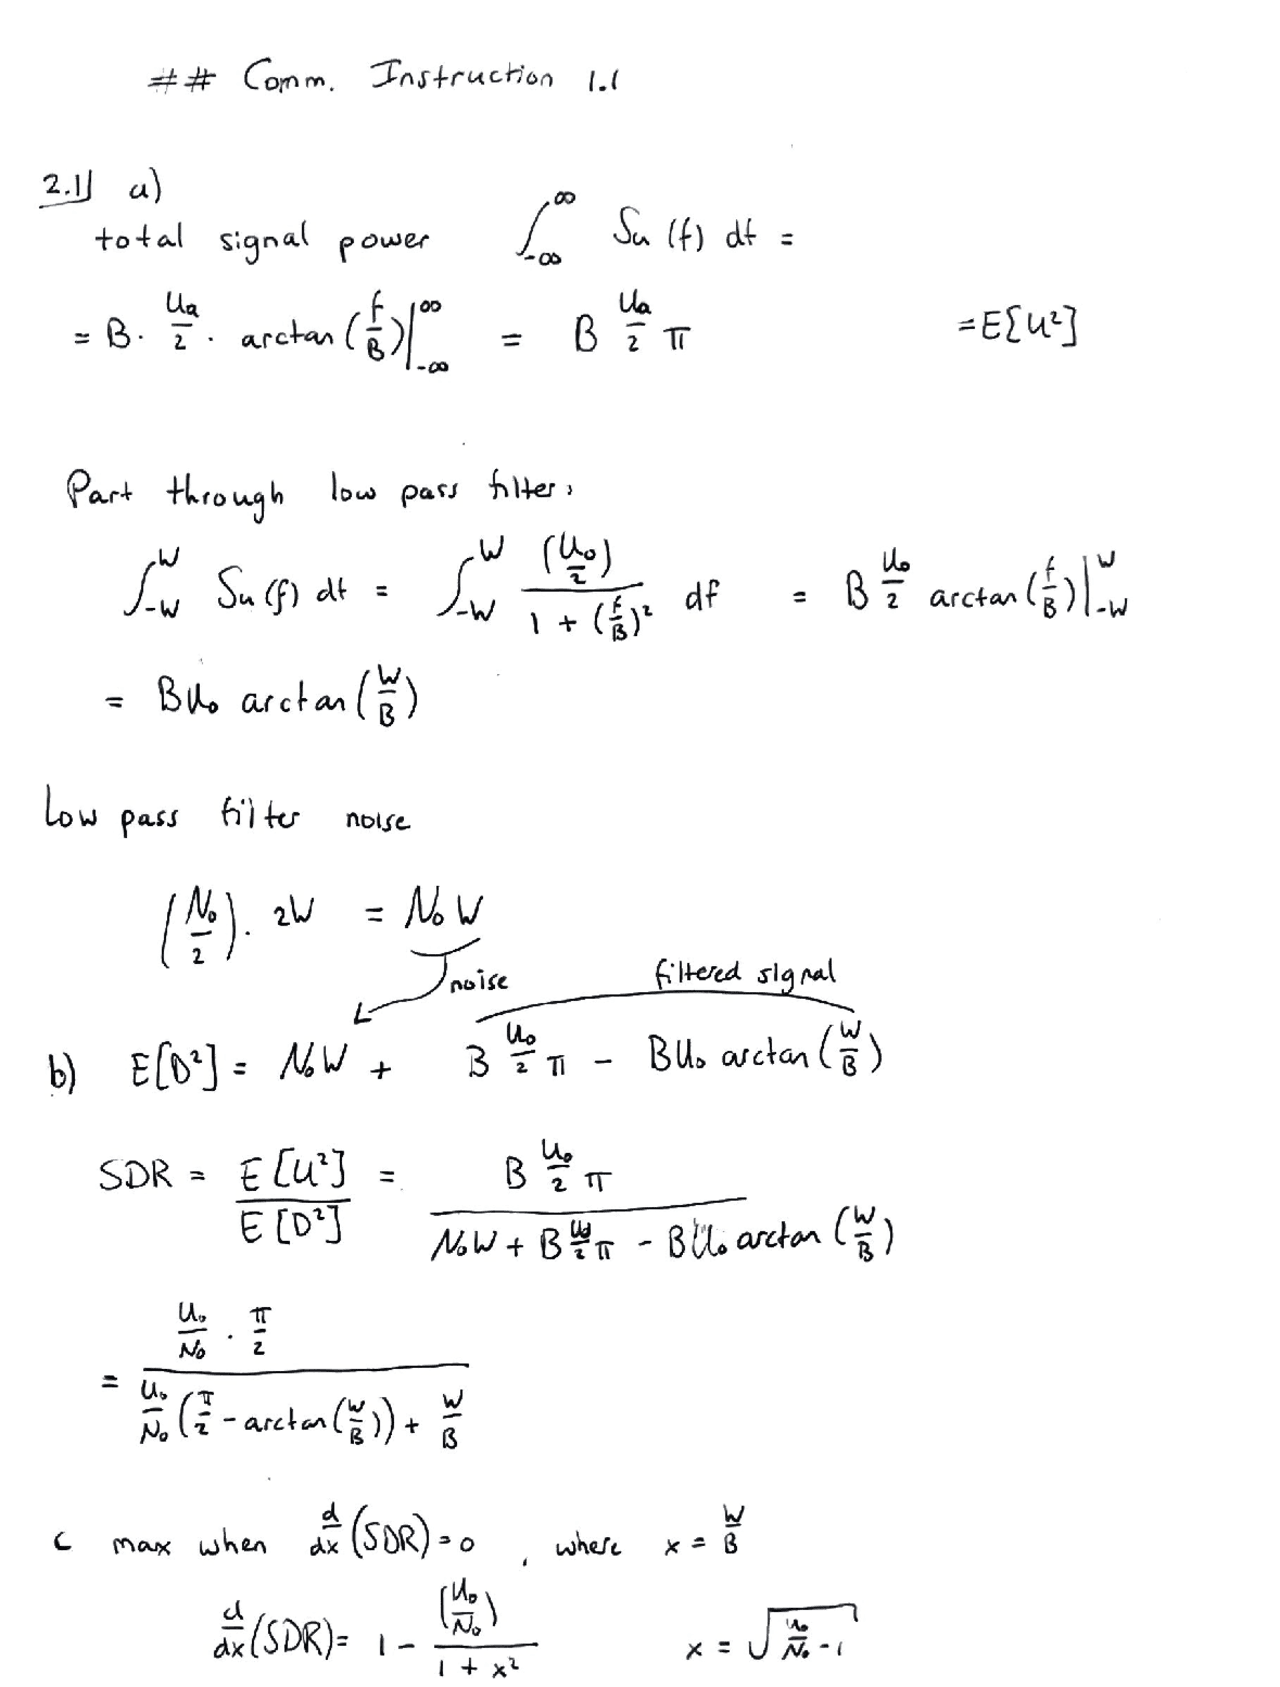 ## Comm. Instruction 1.1
2.1) a)
total signal power ∫_{-∞}^{∞} Su (f) df =
= B · Ua/2 · arctan(f/B)|_{-∞}^{∞} = B Ua/2 π = E[U²]
Part through low pass filter:
∫_{-W}^{W} Su (f) df = ∫_{-W}^{W} (U₀/2) / (1 + (f/B)²) df = B U₀/2 arctan(f/B)|_{-W}^{W}
= BU₀ arctan(W/B)
Low pass filter noise
(N₀/2) · 2W = N₀W
noise
filtered signal
b) E[D²] = N₀W + B U₀/2 π − BU₀ arctan(W/B)
SDR = E[U²] / E[D²] = B U₀/2 π / (N₀W + B U₀/2 π − BU₀ arctan(W/B))
= (U₀/N₀ · π/2) / (U₀/N₀ (π/2 − arctan(W/B)) + W/B)
c max when d/dx (SDR) = 0 , where x = W/B
d/dx (SDR) = 1 − (U₀/N₀) / (1 + x²) x = √(U₀/N₀ − 1)